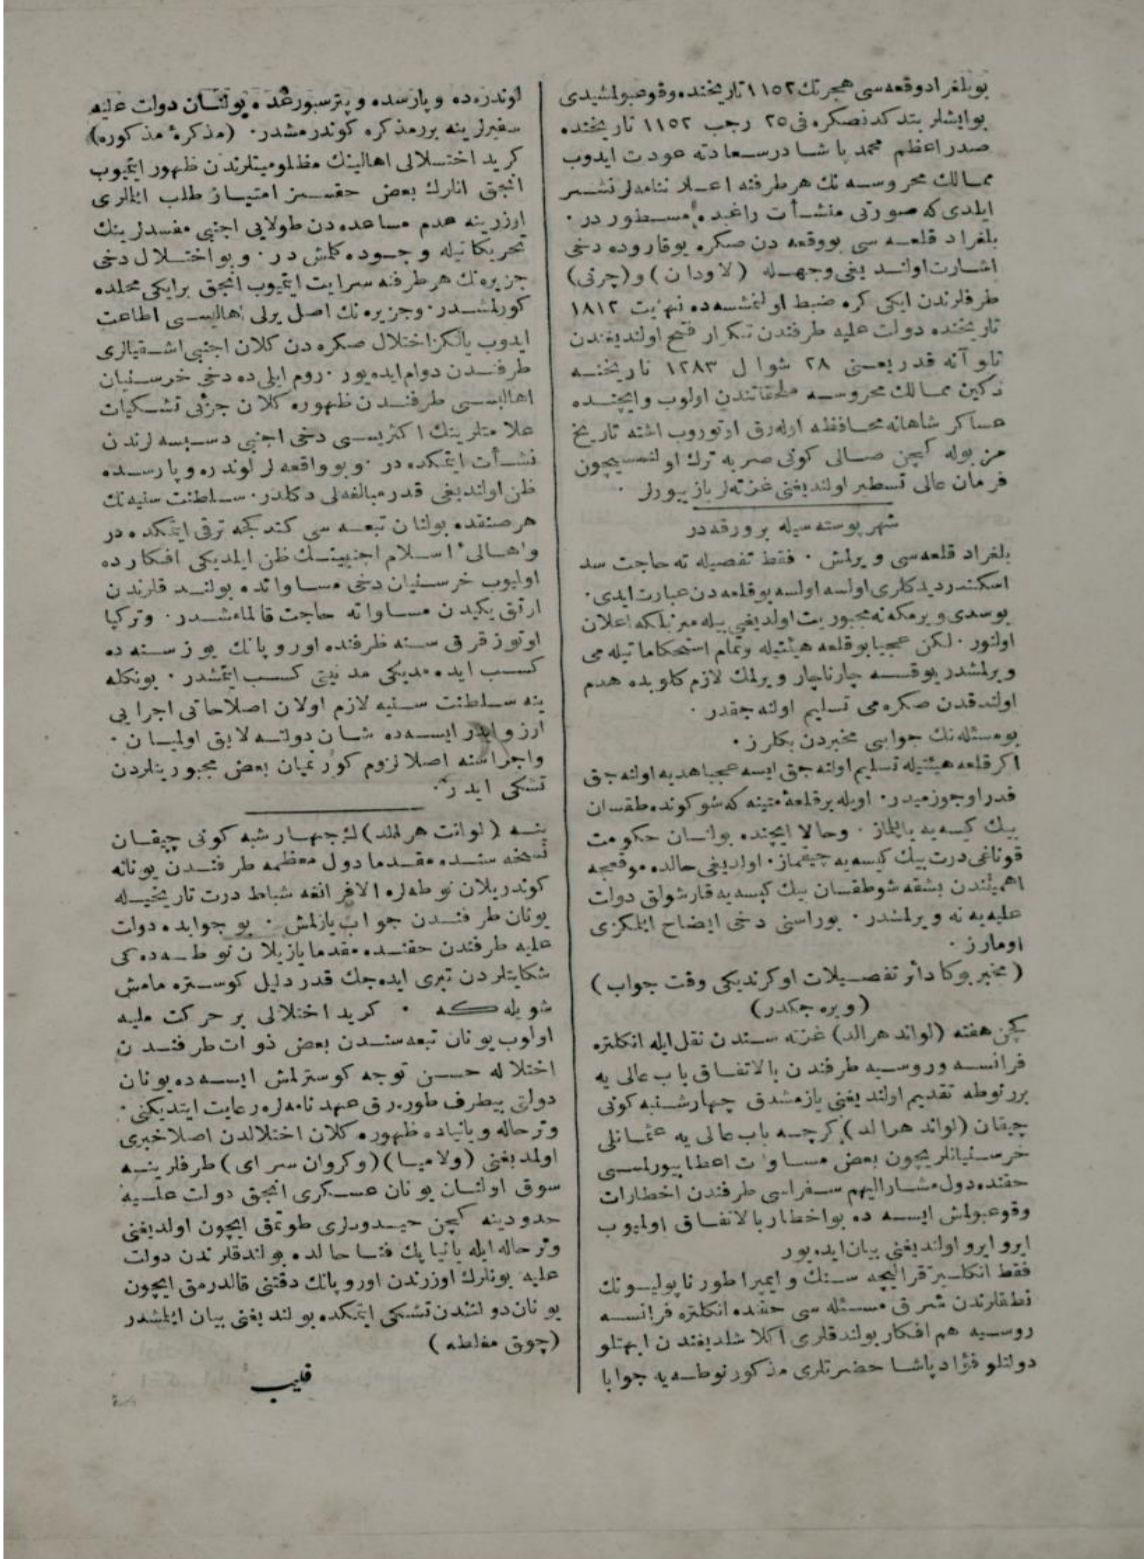 بوبلغراد وقعه سی هجرتك ١١٥٢ تاریخنده وقوعبولمشیدی
بوایشلر بتدکدنصکره فی ٢٥ رجب ١١٥٢ تاریخنده
صدراعظم محمد پاشا درسعادته عودت ایدوب
ممالك محروسه نك هر طرفنه اعلاننامه لر نشر
ایلدی که صورتی منشأت راغبده مسطور در ٠
بلغراد قلعه سی بووقعه دن صکره یوقاروده دخی
اشارت اولندیغی وجهله (لاودان) و(چرنی)
طرفلرندن ایکی کره ضبط اولنمشسه ده نهایت ١٨١٢
تاریخنده دولت علیه طرفندن تکرار فتح اولندیغندن
تاو آنه قدر یعنی ٢٨ شوال ١٢٨٣ تاریخنه
دکین ممالك محروسه ملحقاتندن اولوب وایچنده
عساکر شاهانه محافظه اوله رق اوتوروب اشته تاریخ
مزبوله کچن صالی کونی صربه ترك اولنمسیچون
فرمان عالی تسطیر اولندیغنی غزته لر یازییورلر ٠
شهر پوسته سیله بر ورقه در
بلغراد قلعه سی ویرلمش ٠ فقط تفصیله نه حاجت سد
اسکندر دیدکلری اولسه اولسه بوقلعه دن عبارت ایدی ٠
بوسدی ویرمکه نه مجبوریت اولدیغی بیله مزبلکه اعلان
اولنور ٠ لکن عجبا بوقلعه هیئتیله وتمام استحکاماتیله می
ویرلمشدر یوقسه چارناچار ویرلمك لازم کلوبده هدم
اولندقدن صکره می تسلیم اولنه جقدر ٠
بومسئله نك جوابنی مخبردن بکلرز ٠
اکر قلعه هیئتیله تسلیم اولنه جق ایسه عجبا هدیه اولنه جق
قدر اوجوزمیدر ٠ اویله برقلعۀ متینه که شوکونده طقسان
بیك کیسه یه یاپلماز ٠ وحالا ایچنده بولنان حکومت
قوناغی درت بیك کیسه یه چیقماز ٠ اولدیغی حالده موقعجه
اهمیتندن بشقه شوطقسان بیك کیسه یه قارشولق دولت
علیه یه نه ویرلمشدر ٠ بوراسنی دخی ایضاح ایتملکزی
اومارز ٠
(مخبر بوکا دائر تفصیلات اوکرندیکی وقت جواب)
(ویره جکدر)
کچن هفته (لواند هرالد) غزته سندن نقل ایله انکلتره
فرانسه وروسیه طرفندن بالاتفاق باب عالی یه
برر نوطه تقدیم اولندیغنی یازمشدق چهارشنبه کونی
چیقان (لواند هرالد) کرچه باب عالی یه عثمانلی
خرستیانلریچون بعض مساوات اعطا بیورلمسی
حقنده دول مشارالیهم سفراسی طرفندن اخطارات
وقوعبولمش ایسه ده بواخطار بالاتفاق اولمیوب
ایرو ایرو اولندیغنی بیان ایدیور
فقط انکلیز قرالیچه سنك وایمپراطور ناپولیونك
نطقلرندن شرق مسئله سی حقنده انکلتره فرانسه
روسیه هم افکار بولندقلری اکلاشلدیغندن ابهتلو
دولتلو فؤاد پاشا حضرتلری مذکور نوطه یه جوابا
لوندره ده وپارسده وپترسبورغده بولنان دولت علیه
سفیرلرینه بررمذکره کوندرمشدر ٠ (مذکرۀ مذکوره)
کرید اختلالی اهالینك مظلومیتلرندن ظهور ایتمیوب
انجق انلرك بعض حقسز امتیاز طلب ایتملری
اوزرینه عدم مساعده دن طولایی اجنبی مفسدلرینك
تحریکاتیله وجوده کلمش در ٠ وبو اختلال دخی
جزیره نك هر طرفنه سرایت ایتمیوب انجق برایکی محلده
کورلمشدر ٠ وجزیره نك اصل یرلی اهالیسی اطاعت
ایدوب یالکز اختلال صکره دن کلان اجنبی اشقیالری
طرفندن دوام ایده یور ٠ روم ایلی ده دخی خرستیان
اهالیسی طرفندن ظهوره کلان جزئی تشکیات
علامتلرینك اکثریسی دخی اجنبی دسیسه لرندن
نشأت ایتمکده در ٠ وبو واقعه لر لوندره وپارسده
ظن اولندیغی قدر مبالغه لی دکلدر ٠ سلطنت سنیه نك
هر صنفده بولنان تبعه سی کندکجه ترقی ایتمکده در
واهالیٔ اسلام اجنبینك ظن ایلدیکی افکارده
اولیوب خرستیان دخی مساواتده بولندقلرندن
ارتق یکیدن مساواته حاجت قالمامشدر ٠ وترکیا
اوتوز قرق سنه ظرفنده اوروپانك یوز سنه ده
کسب ایده مدیکی مدنیتی کسب ایتمشدر ٠ بونکله
ینه سلطنت سنیه لازم اولان اصلاحاتی اجرایی
ارزو ایدر ایسه ده شان دولته لایق اولمیان ٠
واجراسنه اصلا لزوم کورنمیان بعض مجبوریتلردن
تشکی ایدر ٠
ینه (لوانت هرالد) ك چهارشنبه کونی چیقان
نسخه سنده مقدما دول معظمه طرفندن یونانه
کوندریلان نوطه لره الافرانغه شباط درت تاریخیله
یونان طرفندن جواب یازلمش ٠ بو جوابده دولت
علیه طرفندن حقنده مقدما یازیلان نوطه ده کی
شکایتلردن تبری ایده جك قدر دلیل کوستره مامش
شویله که ٠ کرید اختلالی بر حرکت ملیه
اولوب یونان تبعه سندن بعض ذوات طرفندن
اختلاله حسن توجه کوسترلمش ایسه ده یونان
دولتی بیطرف طوره رق عهدنامه لره رعایت ایتدیکنی ٠
وترحاله ویانیاده ظهوره کلان اختلالدن اصلا خبری
اولمدیغنی (ولامیا) (وکروان سرای) طرفلرینه
سوق اولنان یونان عسکری انجق دولت علیه
حدودینه کچن حیدودلری طوتمق ایچون اولدیغنی
وترحاله ایله یانیا پك فنا حالده بولندقلرندن دولت
علیه بونلرك اوزرندن اوروپانك دقتنی قالدرمق ایچون
یونان دولتندن تشکی ایتمکده بولندیغنی بیان ایلمشدر
(چوق مغلطه)
فلیب